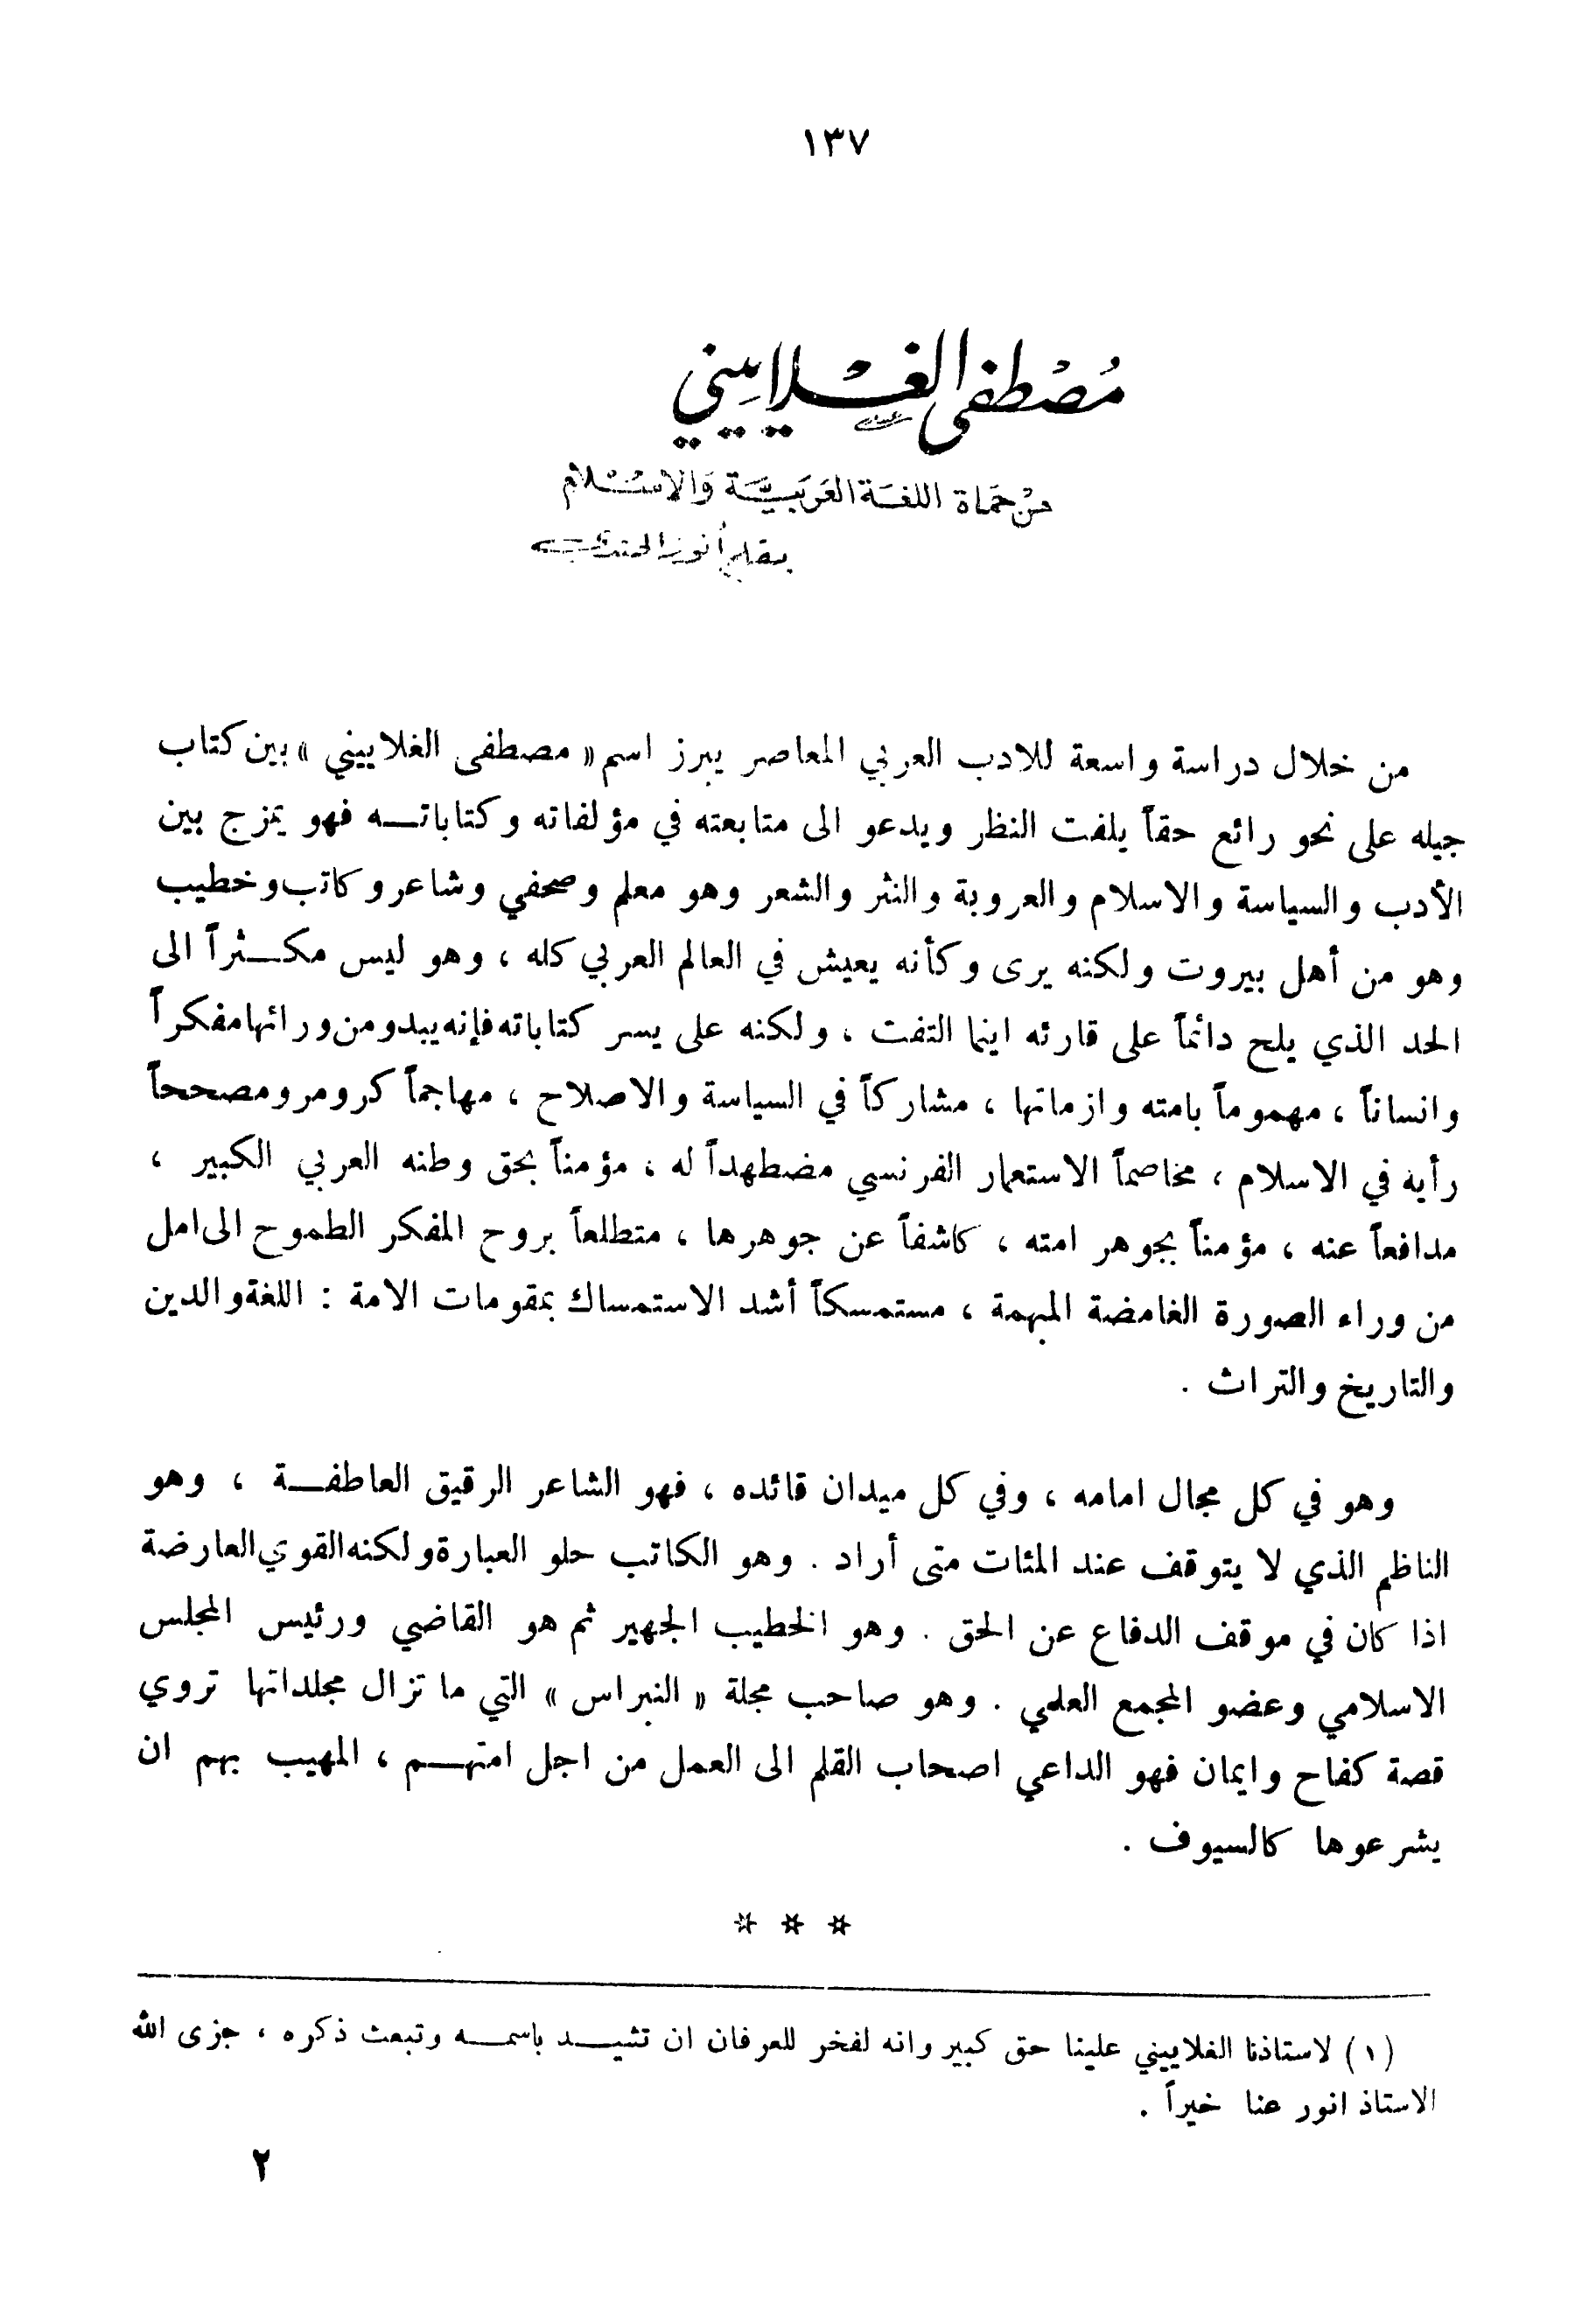 ١٣٧
مُصْطفى الغْلاييني
من حَماة اللغَة العَربيَّة وَالاسْلام
بقلم أنور الجندي
من خلال دراسة واسعة للادب العربي المعاصر يبرز اسم « مصطفى الغلاييني » بين كتاب
جيله على نحو رائع حقاً يلفت النظر ويدعو الى متابعته في مؤلفاته وكتاباتـه فهو يمزج بين
الأدب والسياسة والاسلام والعروبة والنثر والشعر وهو معلم وصحفي وشاعر وكاتب وخطيب
وهو من أهل بيروت ولكنه يرى وكأنه يعيش في العالم العربي كله ، وهو ليس مكـثراً الى
الحد الذي يلح دائماً على قارئه اينما التفت ، ولكنه على يسر كتاباته فإنه يبدو من ورائها مفكراً
وانساناً ، مهموماً بامته وازماتها ، مشاركاً في السياسة والاصلاح ، مهاجماً كرومر ومصححاً
رأيه في الاسلام ، مخاصماً الاستعمار الفرنسي مضطهداً له ، مؤمناً بحق وطنه العربي الكبير ،
مدافعاً عنه ، مؤمناً بجوهر امته ، كاشفاً عن جوهرها ، متطلعاً بروح المفكر الطموح الى امل
من وراء الصورة الغامضة المبهمة ، مستمسكاً أشد الاستمساك بمقومات الامة : اللغة والدين
والتاريخ والتراث .
وهو في كل مجال امامه ، وفي كل ميدان قائده ، فهو الشاعر الرقيق العاطفـة ، وهو
الناظم الذي لا يتوقف عند المئات متى أراد . وهو الكاتب حلو العبارة ولكنه القوي العارضة
اذا كان في موقف الدفاع عن الحق . وهو الخطيب الجهير ثم هو القاضي ورئيس المجلس
الاسلامي وعضو المجمع العلمي . وهو صاحب مجلة « النبراس » التي ما تزال مجلداتها تروي
قصة كفاح وايمان فهو الداعي اصحاب القلم الى العمل من اجل امتهـم ، المهيب بهم ان
يشرعوها كالسيوف .
* * *
(١) لاستاذنا الغلاييني علينا حق كبير وانه لفخر للعرفان ان تشيـد باسمـه وتبعث ذكره ، جزى الله
الاستاذ انور عنا خيراً .
٢